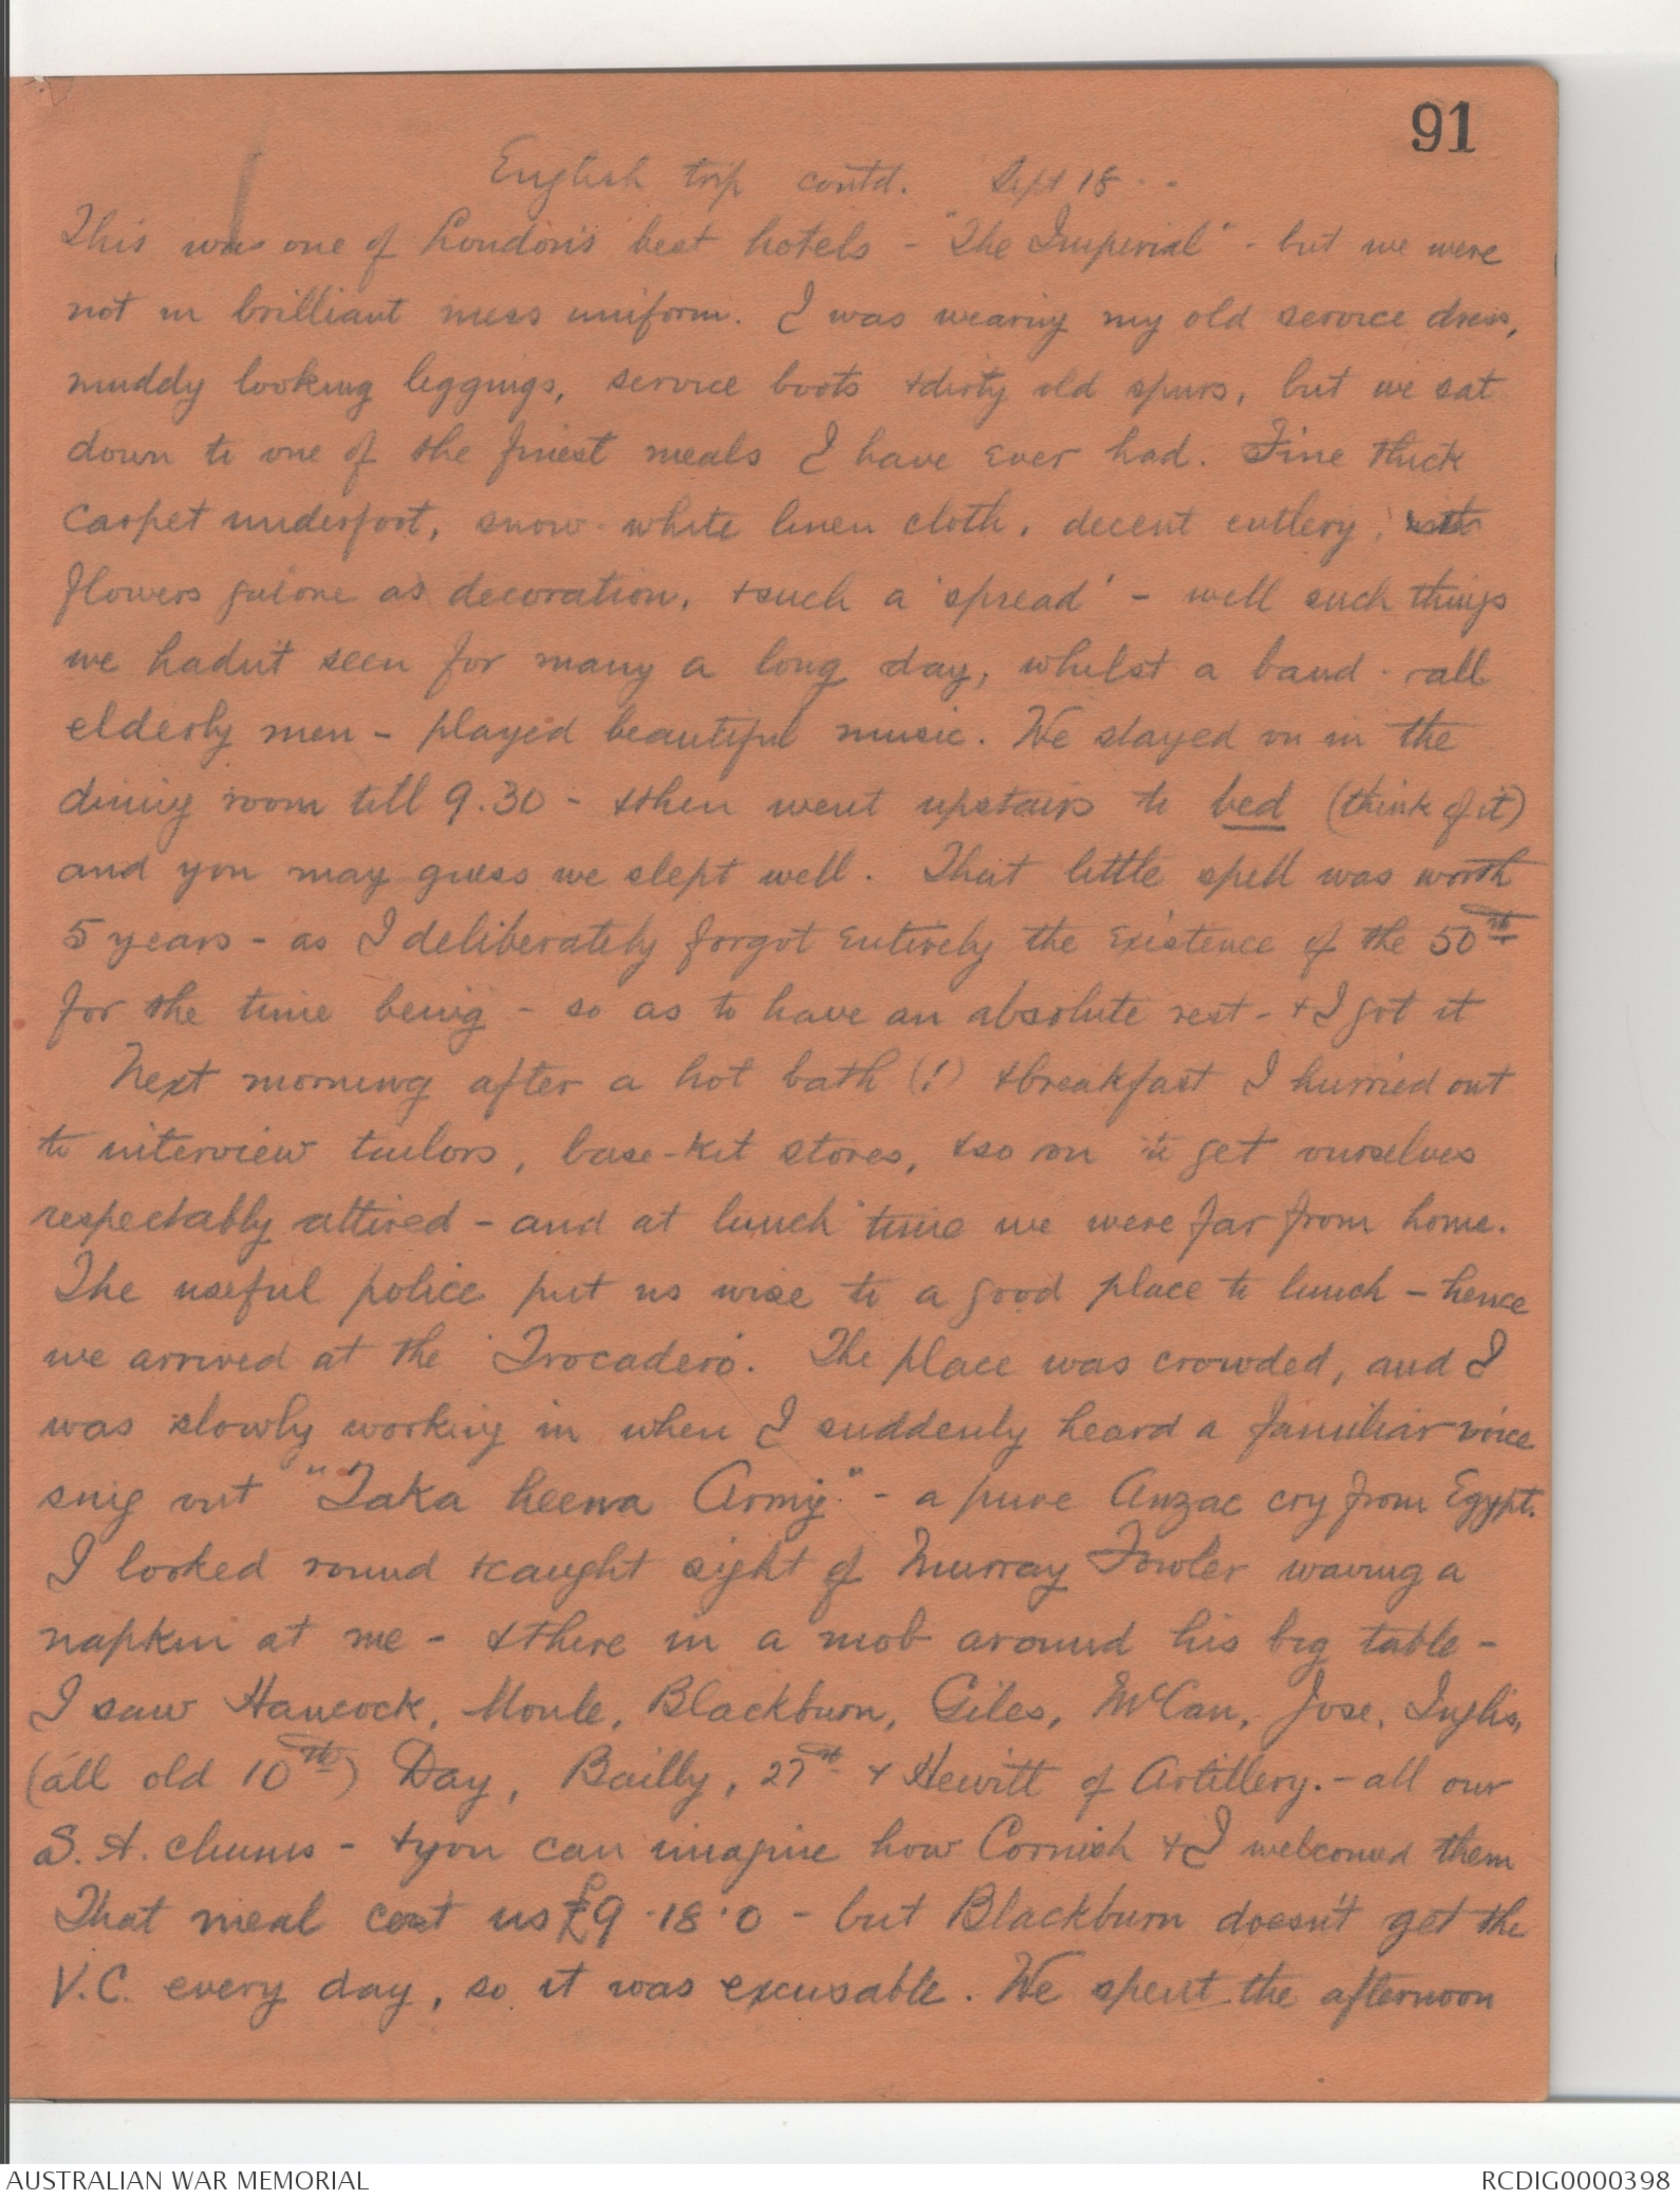 91
English trip contd. Sept 18 - -
This was one of London's best hotels - "The Imperial" - but we were
not in brilliant mess uniform. I was wearing my old service dress,
muddy looking leggings, service boots & dirty old spurs, but we sat
down to one of the finest meals I have ever had. Fine thick
carpet underfoot, snow-white linen cloth, decent cutlery,
flowers galore as decoration, & such a 'spread' - well such things
we hadn't seen for many a long day, whilst a band - all
elderly men - played beautiful music. We stayed on in the
dining room till 9.30 - & then went upstairs to bed (think of it)
and you may guess we slept well. That little spell was worth
5 years - as I deliberately forgot entirely the existence of the 50th
for the time being - so as to have an absolute rest - & I got it
Next morning after a hot bath (!) & breakfast I hurried out
to interview tailors, base-kit stores, & so on to get ourselves
respectably attired - and at lunch time we were far from home.
The useful police put us wise to a good place to lunch - hence
we arrived at the 'Trocadero. The place was crowded, and I
was slowly working in when I suddenly heard a familiar voice
sing out "Taka heena Army" - a pure Anzac cry from Egypt.
I looked round & caught sight of Murray Fowler waving a
napkin at me - & there in a mob around his big table -
I saw Hancock, Moule, Blackburn, Giles, McCan, Jose, Inglis,
(all old 10th) Day, Bailly, 27th & Hewitt of Artillery. - all our
S.A. chums - & you can imagine how Cornish & I welcomed them
That meal cost us £9.18.0 - but Blackburn doesn't get the
V.C. every day, so it was excusable. We spent the afternoon
AUSTRALIAN WAR MEMORIAL
RCDIG0000398